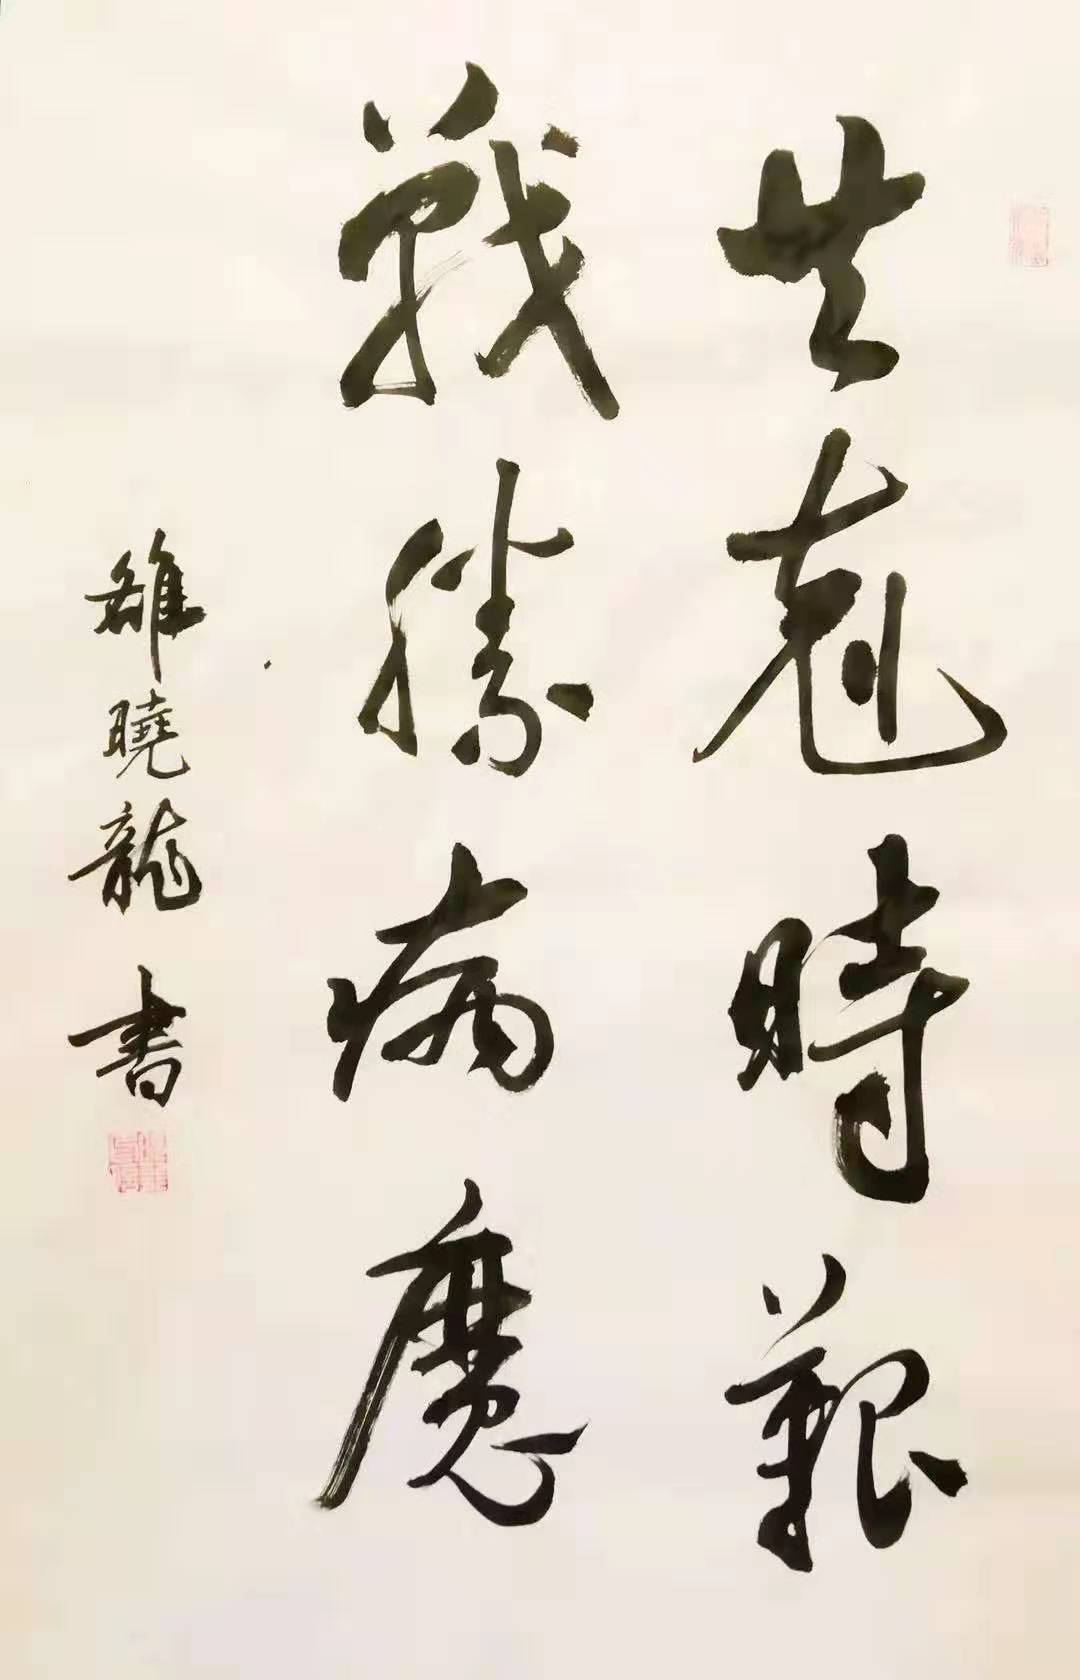 共尅時艱
戰勝病魔
雒曉龍書